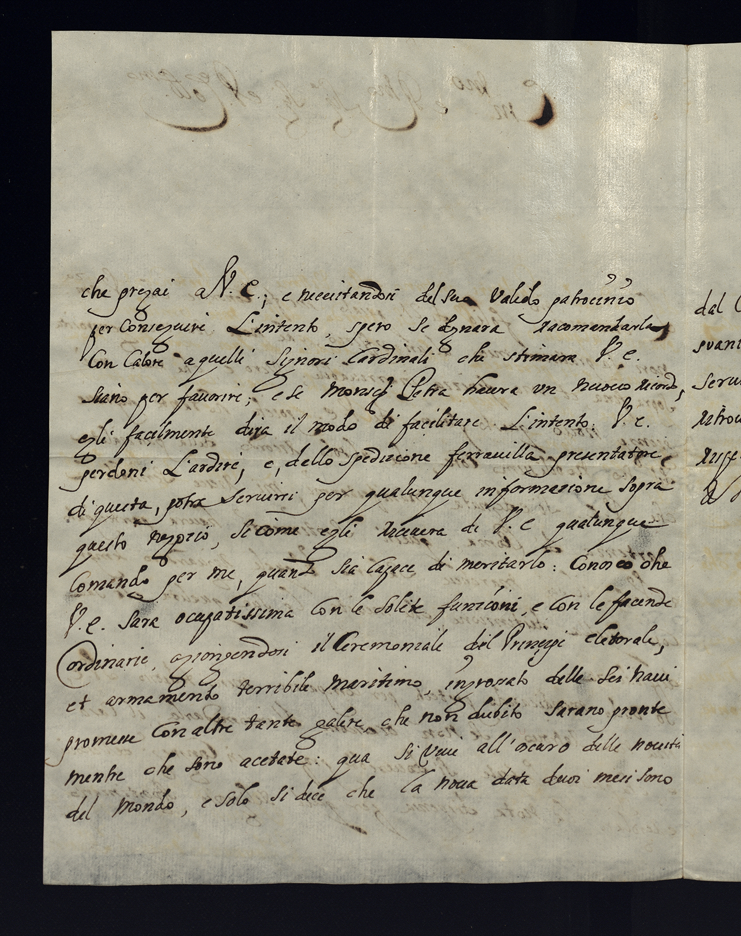 che pregai a V. E.; e necesitandosi del suo valido patrocinio
per Conseguire L'intento, spero se dgnara racomandarla
Con Calore a quelli Signori Cardinali che stimara V. E.
siano per favorire; e se Monsig Petra havera un nuovo ricordo,
egli facilmente dira il modo di facilitare L'intento: V. E.
perdoni L'ardire, e, dello spedizione ferravilla presentatore
di questa, potra servirsi per qualunque informazione sopra
questo negocio, si come egli ricevera di V. E. qualunque
Comando per me, quando sia Capace di meritarlo: Conosco che
V. E. sara ocupatissima Con le solite funcioni, e Con le facende
ordinarie, agiongendosi il Ceremoniale del Principe eletorale,
et armamento terribile maritimo, ingrossato delle sei navi
promesse Con altre tante galere, che non dubito sarano pronte
mente che sono acetate: qua si vive all'oscuro delle novita
del Mondo, e solo si dice che la nova data
dal
svani
serv
ritrov